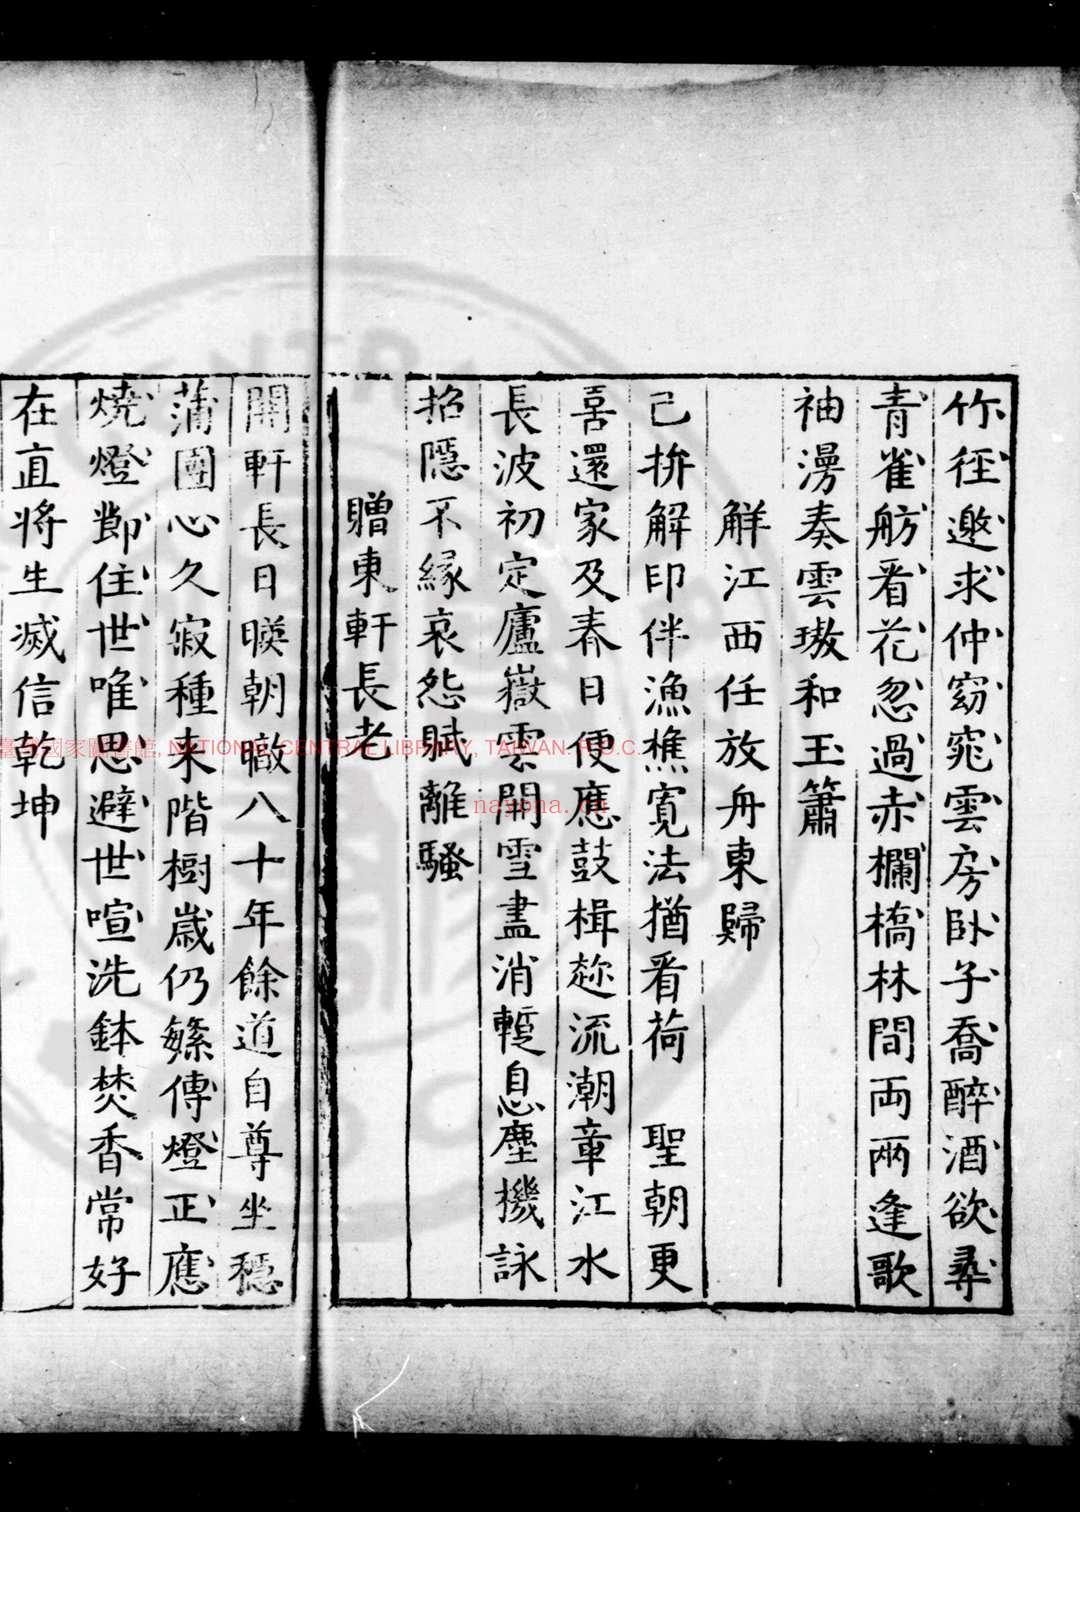 竹徑邀求仲窈窕雲房卧子喬醉酒欲尋
青雀舫看花忽過赤欄橋林間両兩逢歌
袖漫奏雲璈和玉簫
解江西任放舟東歸
已拚解印伴漁樵寬法猶看荷　聖朝更
喜還家及春日便應鼓楫趂流潮章江水
長波初定廬嶽雲開雪盡消蹔息塵機詠
招隱不緣哀怨賦離騷
贈東軒長老
開軒長日暎朝暾八十年餘道自尊坐穩
蒲團心久寂種来階樹嵗仍繁傳燈正應
燒燈刼住世唯思避世喧洗鉢焚香常好
在直将生滅信乾坤
臺灣國家圖書館, NATIONAL CENTRAL LIBRARY, TAIWAN. R.O.C.
nayona.cn